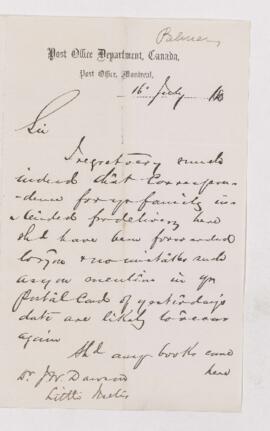 Palmer
Post Office Department, Canada,
Post Office, Montreal,
16 July
Sir
I regret very much
indeed that correspon-
dence for yr family in-
tended for delivery here
shd have been forwarded
to you & no mistakes such
as you mention in yr
Postal Card of yesterday's
date are likely to occur
again
Shd any books come
here
Dr. J W. Dawson
Little Metis